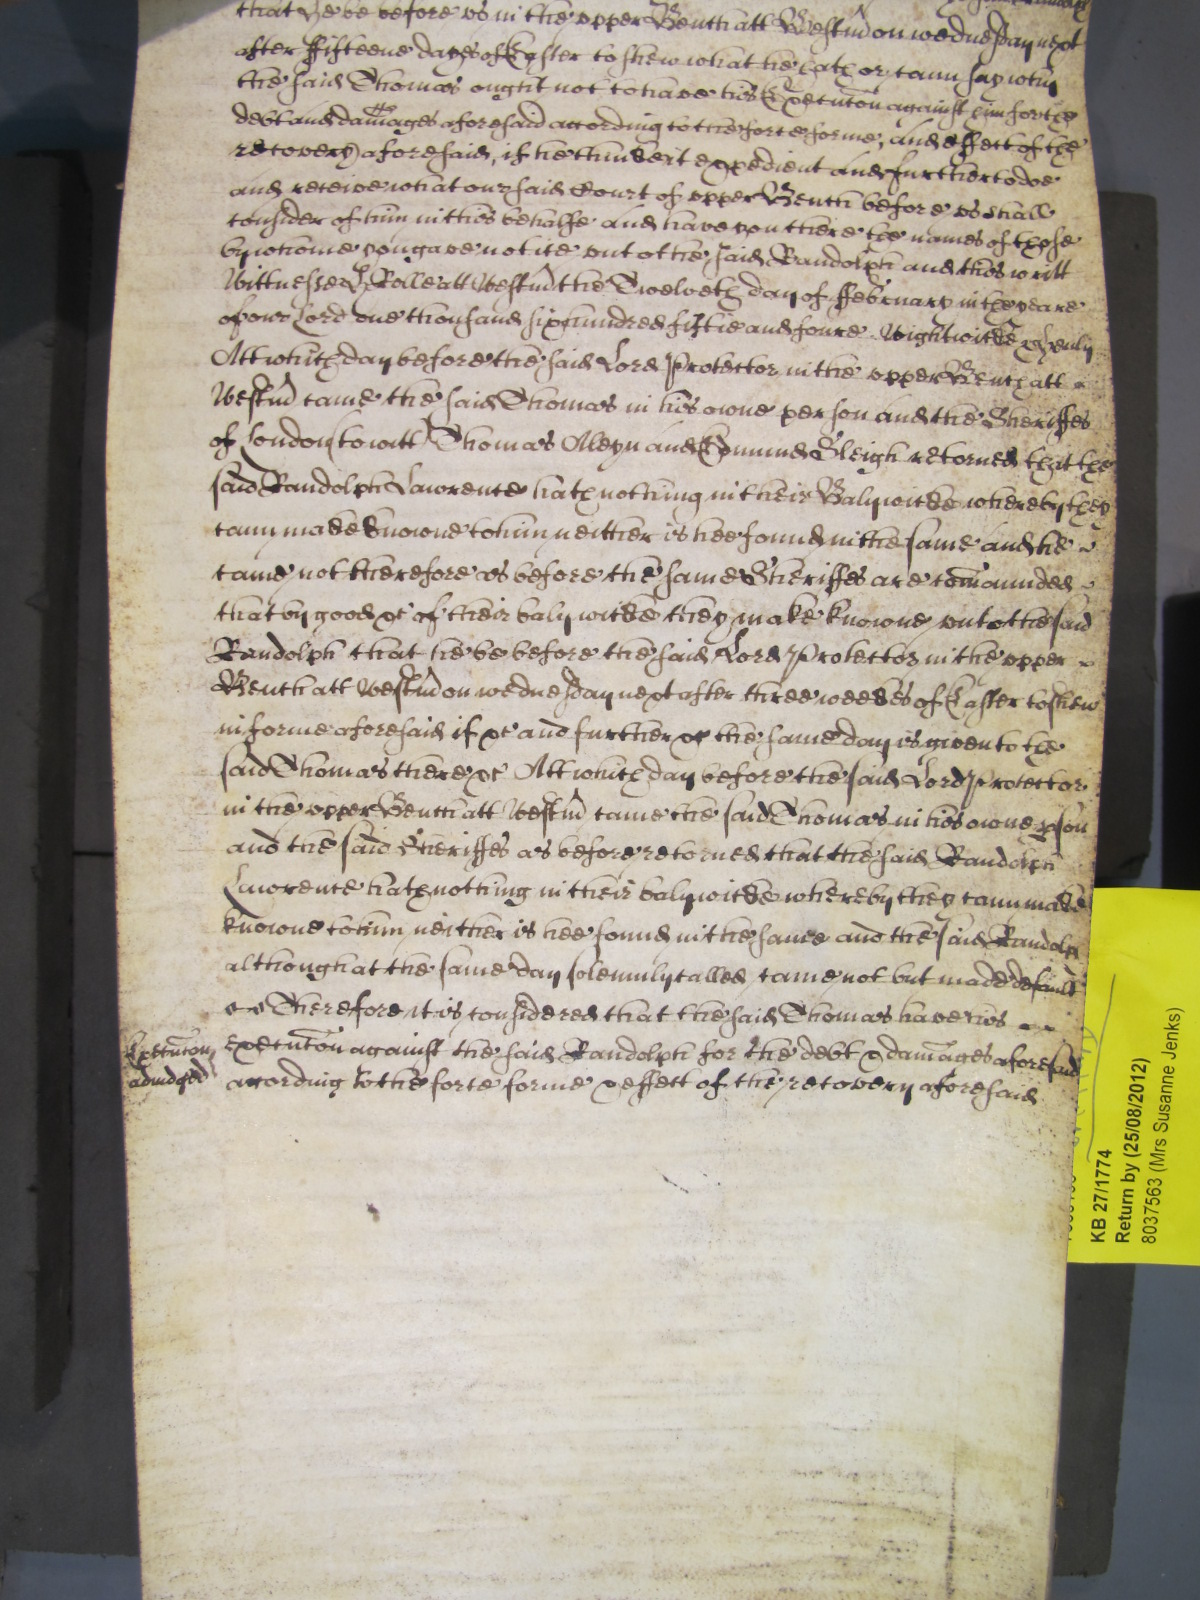 that he be before us in the upper Bench att Westm̃ on wednesday next
after fifteene dayes of Easter to shew what he hath or cann say why
the said Thomas ought not to have his Execuc̃on against him for the
debt and damages aforesaid according to the force forme, and effect of the
recovery aforesaid, if he thinke it expedient and further to doe
and receive what our said Court of upper Bench before us shall
consider of him in this behalfe and have you there the names of those
by whome you gave notice unto the said Randolph and this writt
Wittnesse H Rolle att Westm̃ the Twelveth day of ffebruary in the yeare
of our Lord one thousand six hundred fiftie and foure Wightwicke &
Att which day before the said Lord Protector in the upper Bench att
Westm̃ came the said Thomas in his owne person and the Sheriffes
of London to witt Thomas Aleyn and Edmund Sleigh retorned that the
said Randolph Lawrence hath nothing in their Balywicke whereby they
cann make knowne to him neither is hee found in the same and he
came not therefore as before the same Sheriffes are com̃aunded
that by good &c of their balywicke they make knowne unto the said
Randolph that he be before the said Lord Protector in the upper
Bench att Westm̃ on wednesday next after three weekes of Easter to shew
in forme aforesaid if &c and further &c the same day is given to the
said Thomas there &c Att which day before the said Lord Protector
in the upper Bench att Westm̃ came the said Thomas in his owne ꝑson
and the said Sheriffes as before retorned that the said Randolph
Lawrence hath nothing in their balywicke whereby they cann make
knowne to him neither is hee found in the same and the said Randolph
although at the same day solemnly called came not but made default
Therefore it is considered that the said Thomas have his
Execuc̃on
adiudged
execuc̃on against the said Randolph for the debt & damages aforesaid
according to the force forme & effect of the recovery aforesaid
KB 27/1774
Return by (25/08/2012)
8037563 (Mrs Susanne Jenks)